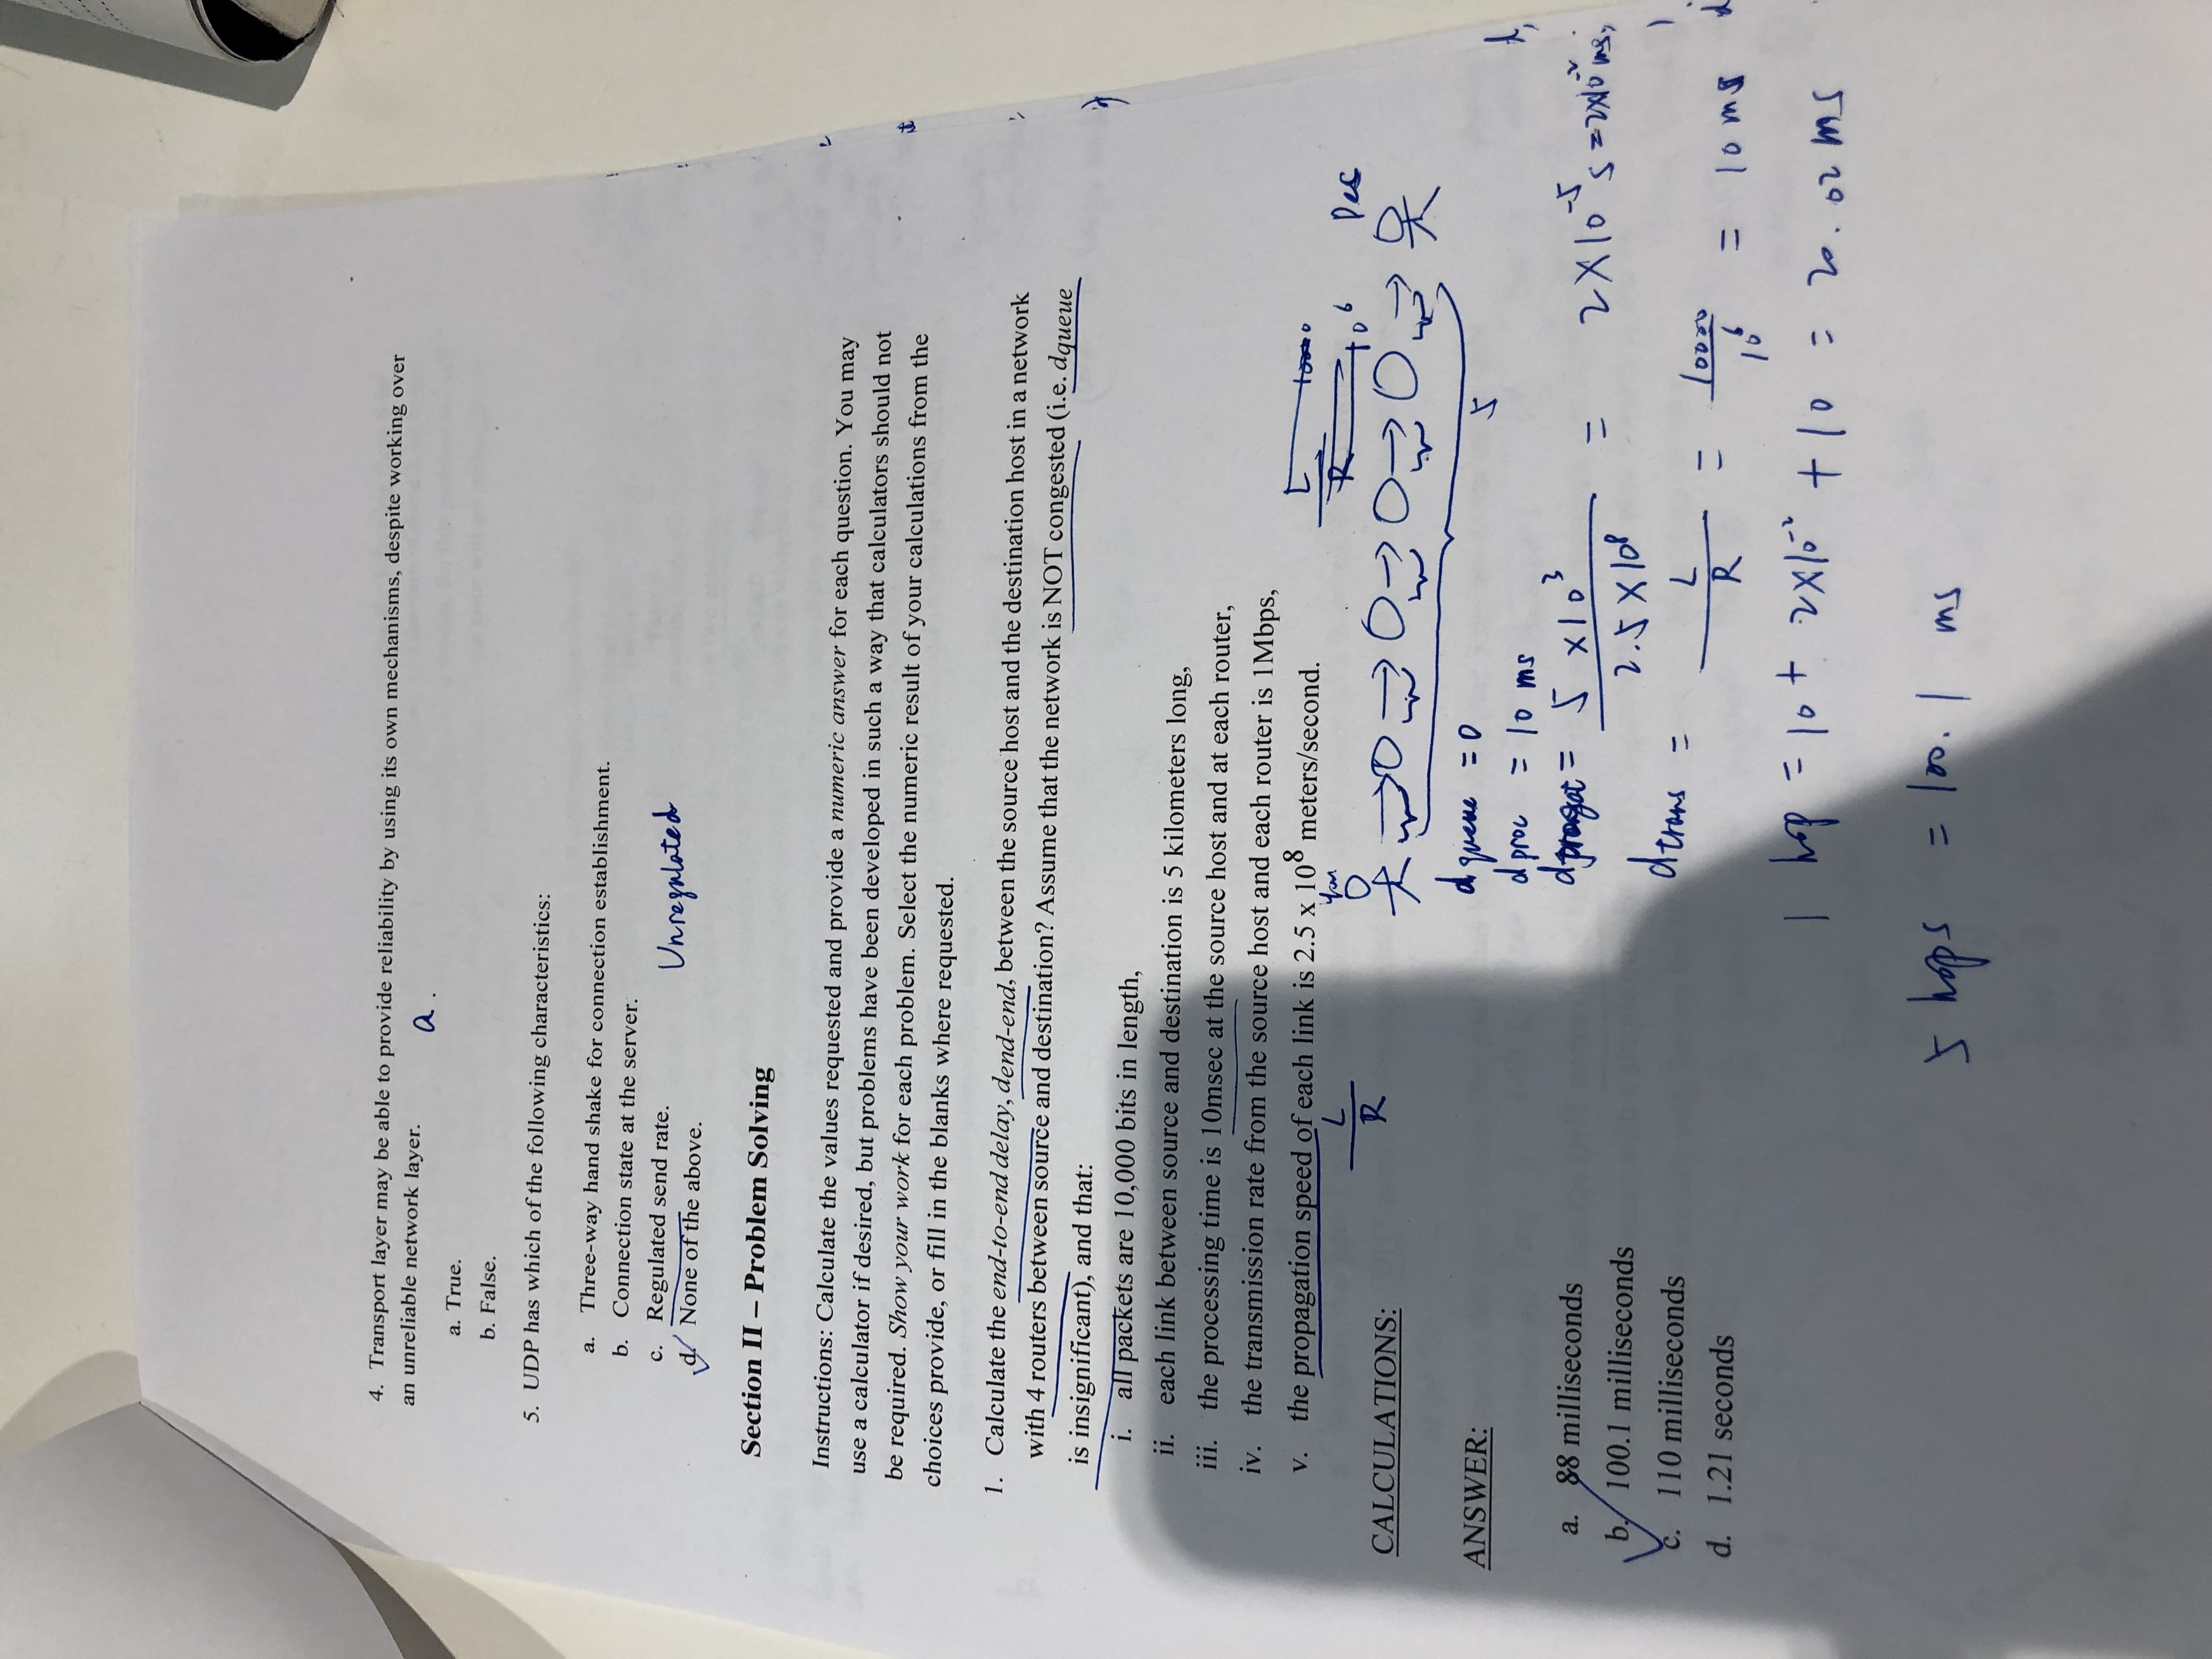 4. Transport layer may be able to provide reliability by using its own mechanisms, despite working over
an unreliable network layer.
a.
a. True.
b. False.
5. UDP has which of the following characteristics:
a. Three-way hand shake for connection establishment.
b. Connection state at the server.
c. Regulated send rate.
Unregulated
d. None of the above.
Section II – Problem Solving
Instructions: Calculate the values requested and provide a numeric answer for each question. You may
use a calculator if desired, but problems have been developed in such a way that calculators should not
be required. Show your work for each problem. Select the numeric result of your calculations from the
choices provide, or fill in the blanks where requested.
1. Calculate the end-to-end delay, dend-end, between the source host and the destination host in a network
with 4 routers between source and destination? Assume that the network is NOT congested (i.e. dqueue
is insignificant), and that:
i. all packets are 10,000 bits in length,
ii. each link between source and destination is 5 kilometers long,
iii. the processing time is 10msec at the source host and at each router,
iv. the transmission rate from the source host and each router is 1Mbps,
v. the propagation speed of each link is 2.5 x 10⁸ meters/second.
L
R
L 10000
R 10⁶
CALCULATIONS:
5
ANSWER:
d queue = 0
d proc = 10 ms
= 5 x10³ / 2.5 x 10⁸ = 2 x 10⁻⁵ s = 2x10⁻² ms
d trans = L / R = 10000 / 10⁶ = 10 ms
a. 88 milliseconds
b. 100.1 milliseconds
c. 110 milliseconds
d. 1.21 seconds
1 hop = 10 + 2x10⁻² + 10 = 20.02 ms
5 hops = 100.1 ms